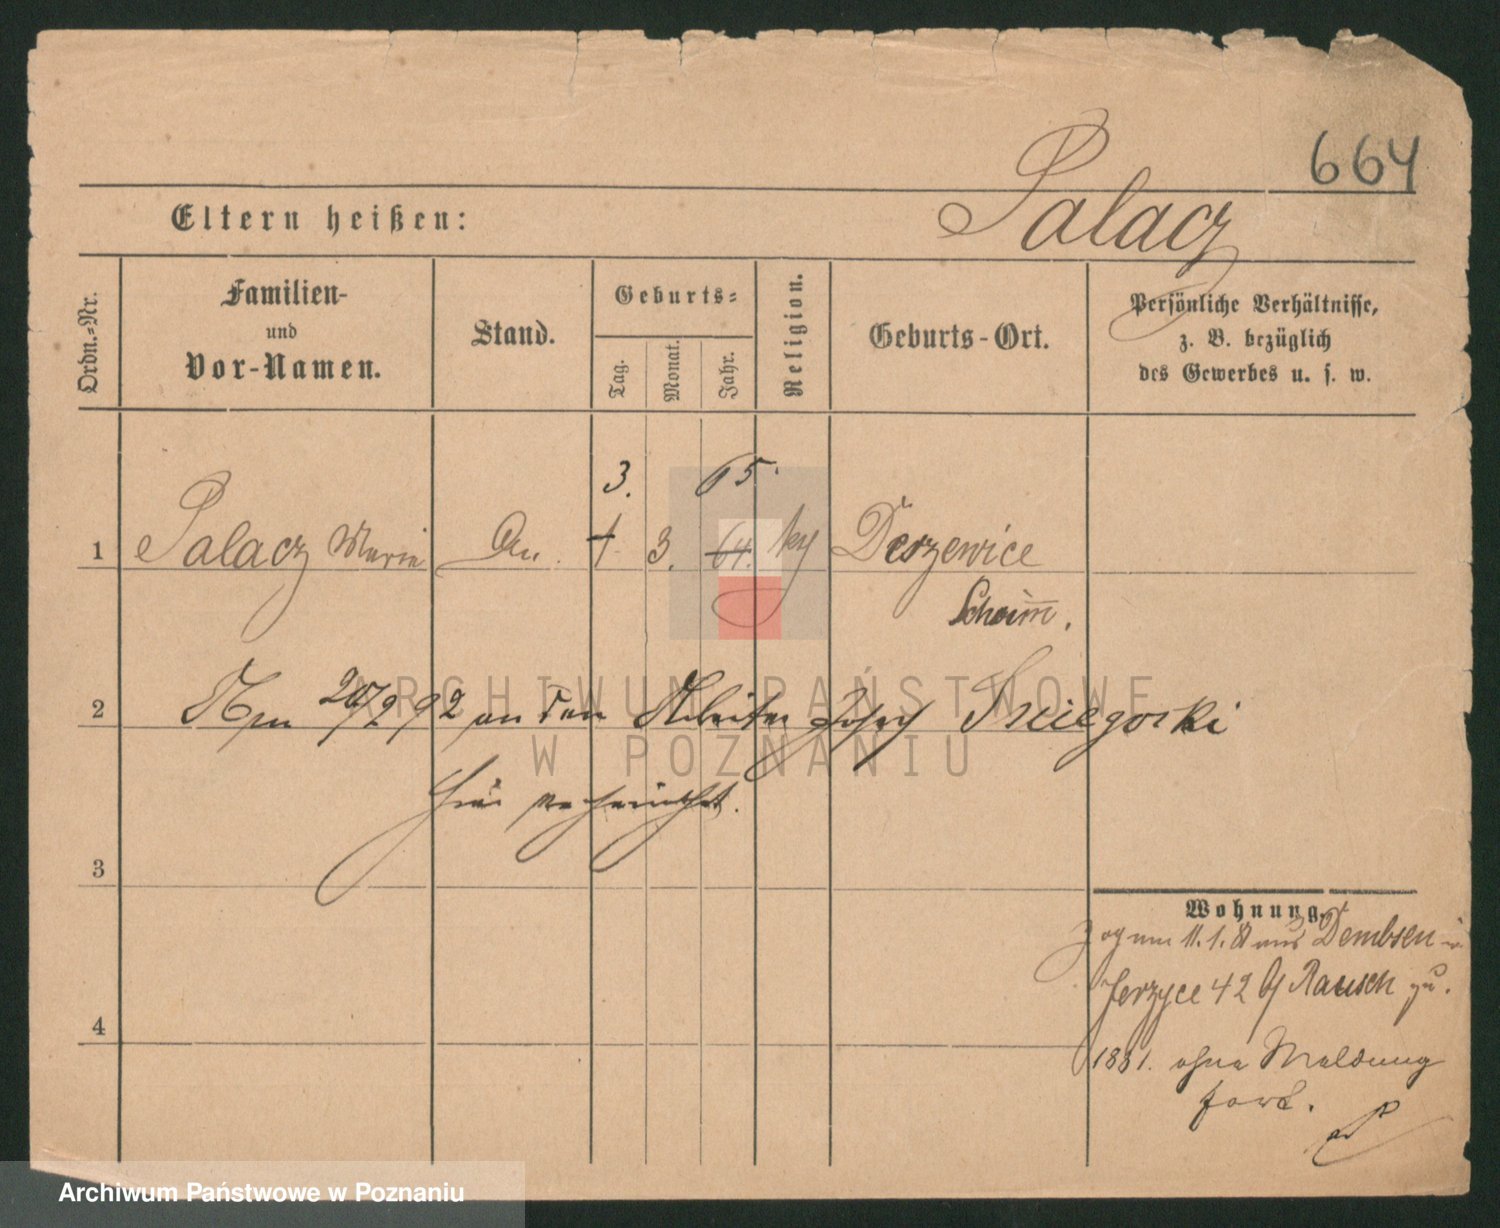 664
Eltern heißen:
Palacz
Ordn.-Nr.
Familien-
und
Vor-Namen.
Stand.
Geburts-
Tag.
Monat.
Jahr.
Religion.
Geburts-Ort.
Persönliche Verhältnisse,
z. B. bezüglich
des Gewerbes u. s. w.
3. 65.
1 Palacz Maria 1. 3. 64. Derzewice
Schrimm.
2 Am 20/2 92 an den Arbeiter Josef
ARCHIWUM PAŃSTWOWE
W POZNANIU
hier verheirathet.
3
Wohnung.
zog am 11. 1. 81 aus Dembsen in
Jerzyce 42 b/ Rausch zu.
4
1881. ohne Meldung
fort.
Archiwum Państwowe w Poznaniu